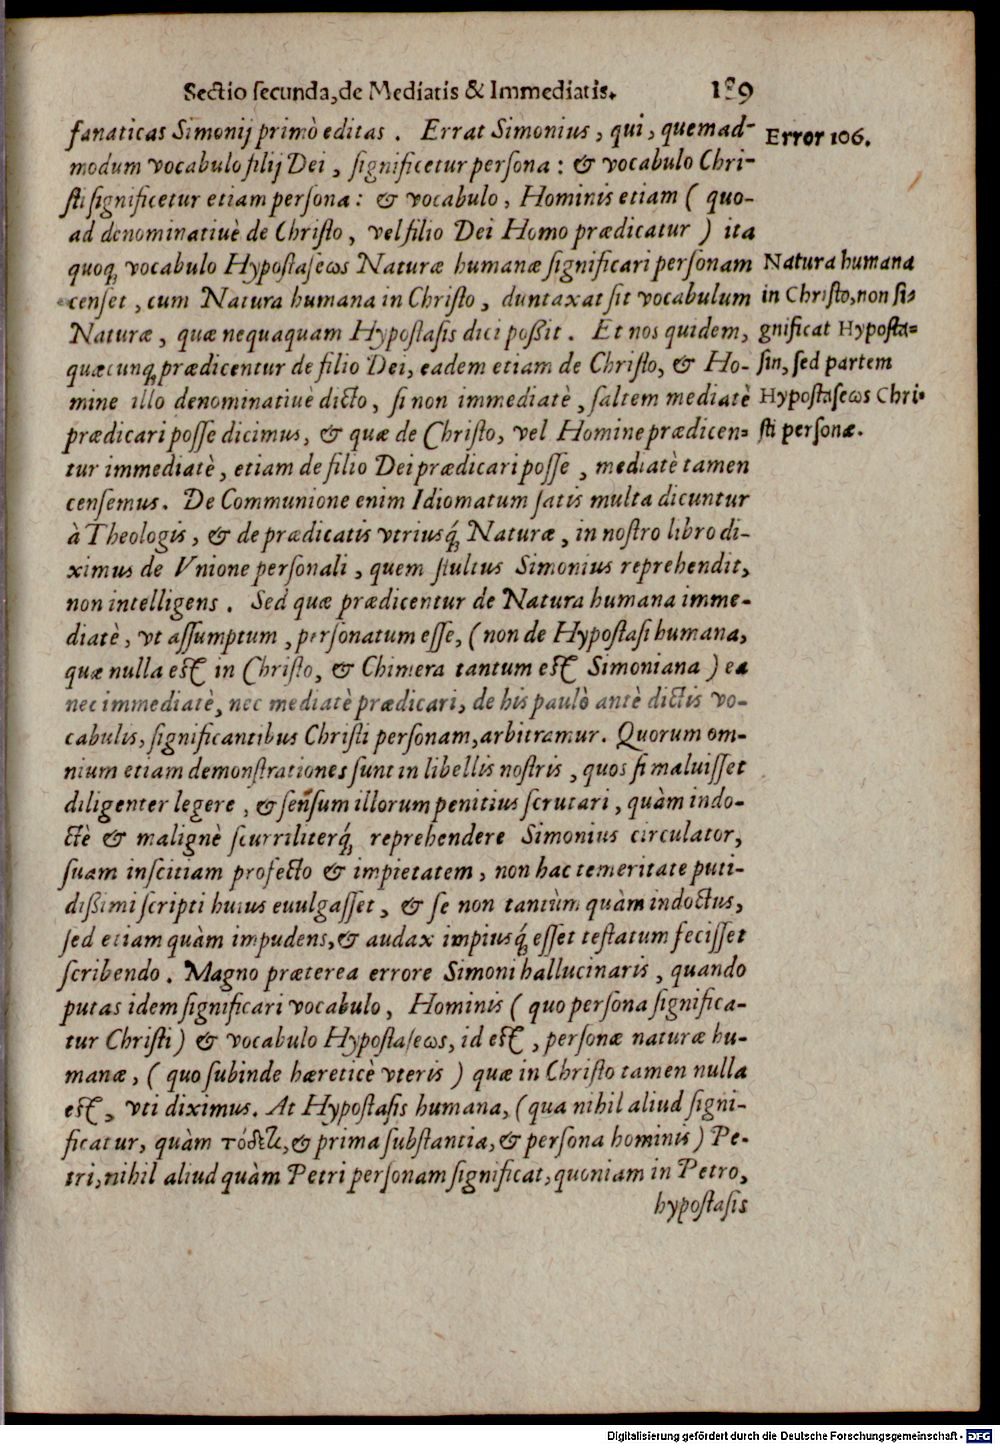 Sectio secunda, de Mediatis & Immediatis. 189
fanaticas Simonij primò editas. Errat Simonius, qui, quemad-
Error 106.
modum vocabulo filij Dei, significetur persona: & vocabulo Chri-
sti significetur etiam persona: & vocabulo, Hominis etiam ( quo-
ad denominatiuè de Christo, vel filio Dei Homo prædicatur ) ita
quoq́; vocabulo Hypostaseωs Naturæ humanæ significari personam
censet, cum Natura humana in Christo, duntaxat sit vocabulum
Naturæ, quæ nequaquam Hypostasis dici poßit. Et nos quidem,
quæcunq́; prædicentur de filio Dei, eadem etiam de Christo, & Ho-
mine illo denominatiuè dicto, si non immediatè, saltem mediatè
prædicari posse dicimus, & quæ de Christo, vel Homine prædicen-
Natura humana
in Christo, non si-
gnificat Hyposta-
sin, sed partem
Hypostaseωs Chri-
sti personæ.
tur immediatè, etiam de filio Dei prædicari posse, mediatè tamen
censemus. De Communione enim Idiomatum satis multa dicuntur
à Theologis, & de prædicatis vtriusq́; Naturæ, in nostro libro di-
ximus de Vnione personali, quem stultus Simonius reprehendit,
non intelligens. Sed quæ prædicentur de Natura humana imme-
diatè, vt assumptum, personatum esse, (non de Hypostasi humana,
quæ nulla est in Christo, & Chimera tantum est Simoniana ) ea
nec immediatè, nec mediatè prædicari, de his paulò antè dictis vo-
cabulis, significantibus Christi personam, arbitramur. Quorum om-
nium etiam demonstrationes sunt in libellis nostris, quos si maluisset
diligenter legere, & sensum illorum penitius scrutari, quàm indo-
ctè & malignè scurriliterq́; reprehendere Simonius circulator,
suam inscitiam profecto & impietatem, non hac temeritate puti-
dißimi scripti huius euulgasset, & se non tantùm quàm indoctus,
sed etiam quàm impudens, & audax impiusq́; esset testatum fecisset
scribendo. Magno præterea errore Simoni hallucinaris, quando
putas idem significari vocabulo, Hominis ( quo persona significa-
tur Christi ) & vocabulo Hypostaseωs, id est, personæ naturæ hu-
manæ, ( quo subinde hæreticè vteris ) quæ in Christo tamen nulla
est, vti diximus. At Hypostasis humana, (qua nihil aliud signi-
ficatur, quàm τόδε τι, & prima substantia, & persona hominis ) Pe-
tri, nihil aliud quàm Petri personam significat, quoniam in Petro,
hypostasis
Digitalisierung gefördert durch die Deutsche Forschungsgemeinschaft - DFG